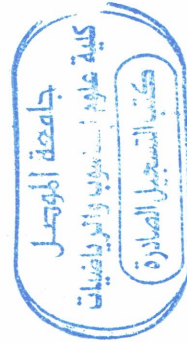 جامعة الموصل
كلية علوم الحاسوب والرياضيات
مكتب التسجيل الصادرة